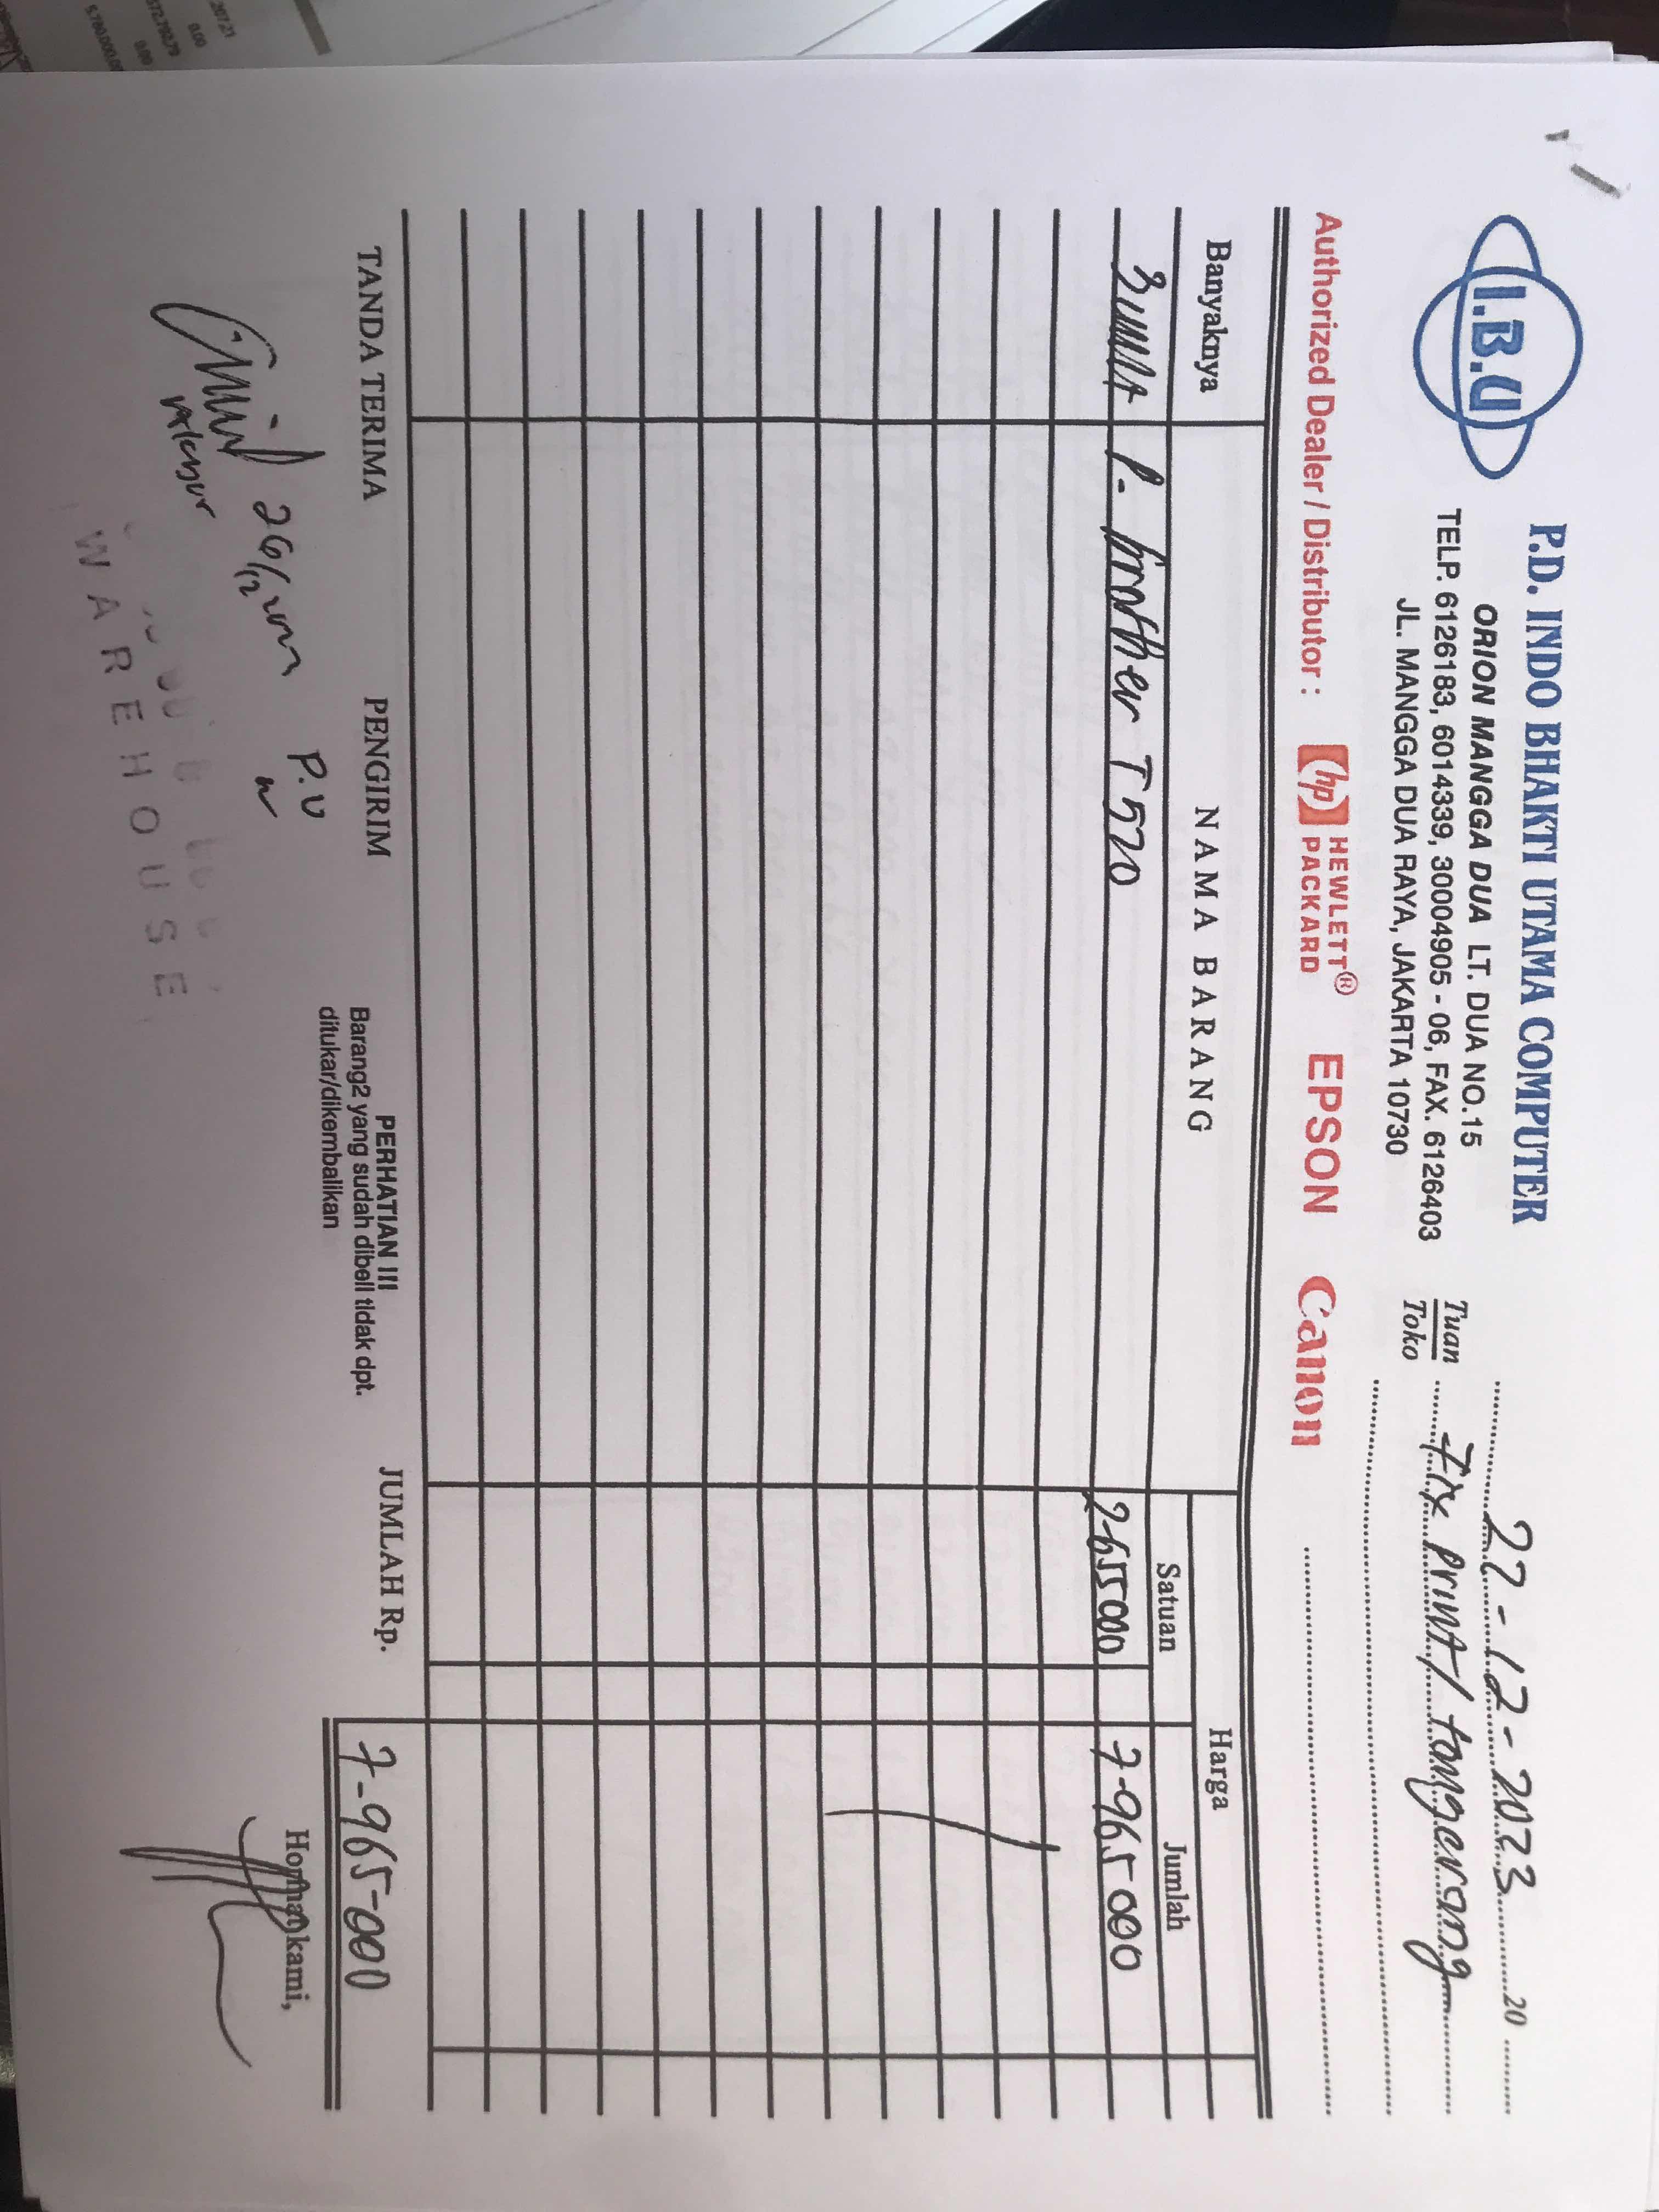 I.B.U
P.D. INDO BHAKTI UTAMA COMPUTER
ORION MANGGA DUA LT. DUA NO.15
TELP. 6126183, 6014339, 30004905 - 06, FAX. 6126403
JL. MANGGA DUA RAYA, JAKARTA 10730
22-12-2023 20
Tuan
Toko
Fix Print / tangerang
Authorized Dealer / Distributor : hp HEWLETT® PACKARD EPSON Canon
Banyaknya NAMA BARANG Harga
Satuan Jumlah
3 P. brother T520 2-655000 7-965000
TANDA TERIMA PENGIRIM JUMLAH Rp. 7-965-000
PERHATIAN !!!
Barang2 yang sudah dibeli tidak dpt.
ditukar/dikembalikan
Hormat kami,
26/12 P.U
WAREHOUSE
207.21
0.00
572.792.79
0.00